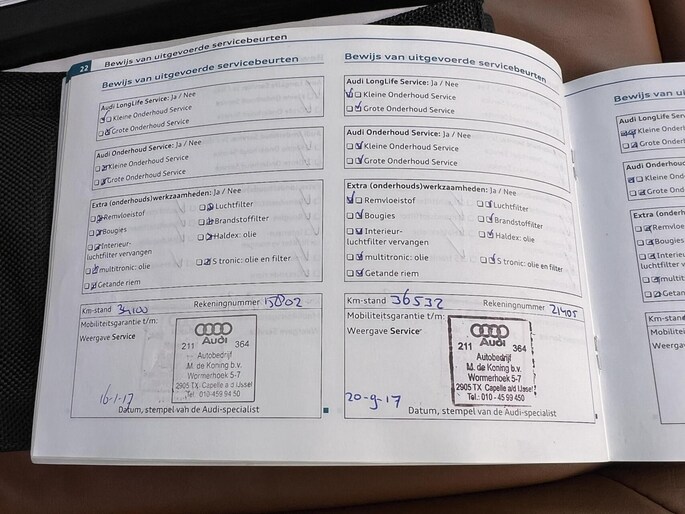 22 Bewijs van uitgevoerde servicebeurten
Bewijs van uitgevoerde servicebeurten
Audi LongLife Service: Ja / Nee
Kleine Onderhoud Service
Grote Onderhoud Service
Audi Onderhoud Service: Ja / Nee
Kleine Onderhoud Service
Grote Onderhoud Service
Extra (onderhouds)werkzaamheden: Ja / Nee
Remvloeistof Luchtfilter
Bougies Brandstoffilter
Interieur-
luchtfilter vervangen Haldex: olie
multitronic: olie S tronic: olie en filter
Getande riem
Km-stand 34100 Rekeningnummer 15802
Mobiliteitsgarantie t/m:
Weergave Service
Audi
211 364
Autobedrijf
M. de Koning b.v.
Wormerhoek 5-7
2905 TX Capelle a/d IJssel
Tel.: 010-459 94 50
16-1-17
Datum, stempel van de Audi-specialist
Bewijs van uitgevoerde servicebeurten
Audi LongLife Service: Ja / Nee
Kleine Onderhoud Service
Grote Onderhoud Service
Audi Onderhoud Service: Ja / Nee
Kleine Onderhoud Service
Grote Onderhoud Service
Extra (onderhouds)werkzaamheden: Ja / Nee
Remvloeistof Luchtfilter
Bougies Brandstoffilter
Interieur-
luchtfilter vervangen Haldex: olie
multitronic: olie S tronic: olie en filter
Getande riem
Km-stand 36532 Rekeningnummer 21405
Mobiliteitsgarantie t/m:
Weergave Service
Audi
211 364
Autobedrijf
M. de Koning b.v.
Wormerhoek 5-7
2905 TX Capelle a/d IJssel
Tel.: 010 - 45 99 450
20-9-17
Datum, stempel van de Audi-specialist
Bewijs van ui
Audi LongLife Serv
Kleine Onderho
Grote Onderhou
Audi Onderhoud
Kleine Onde
Grote Onder
Extra (onderhou
Remvloeisto
Bougies
Interieur-
luchtfilter ver
multitronic:
Getande
Km-stand
Mobiliteits
Weergave